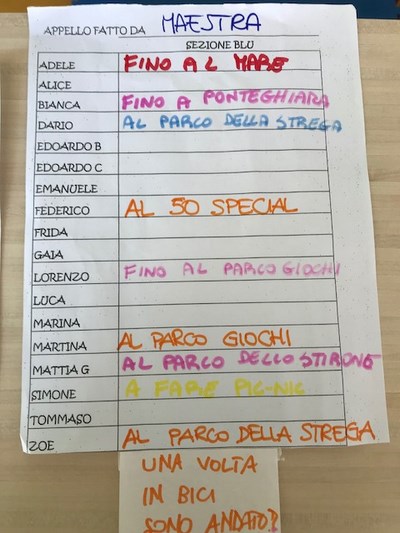 APPELLO FATTO DA MAESTRA
SEZIONE BLU
ADELE FINO AL MARE
ALICE
BIANCA FINO A PONTEGHIARA
DARIO AL PARCO DELLA STREGA
EDOARDO B
EDOARDO C
EMANUELE
FEDERICO AL 50 SPECIAL
FRIDA
GAIA
LORENZO FINO AL PARCO GIOCHI
LUCA
MARINA
MARTINA AL PARCO GIOCHI
MATTIA G AL PARCO DELLO STIRONE
SIMONE A FARE PIC-NIC
TOMMASO
ZOE AL PARCO DELLA STREGA
UNA VOLTA
IN BICI
SONO ANDATO?